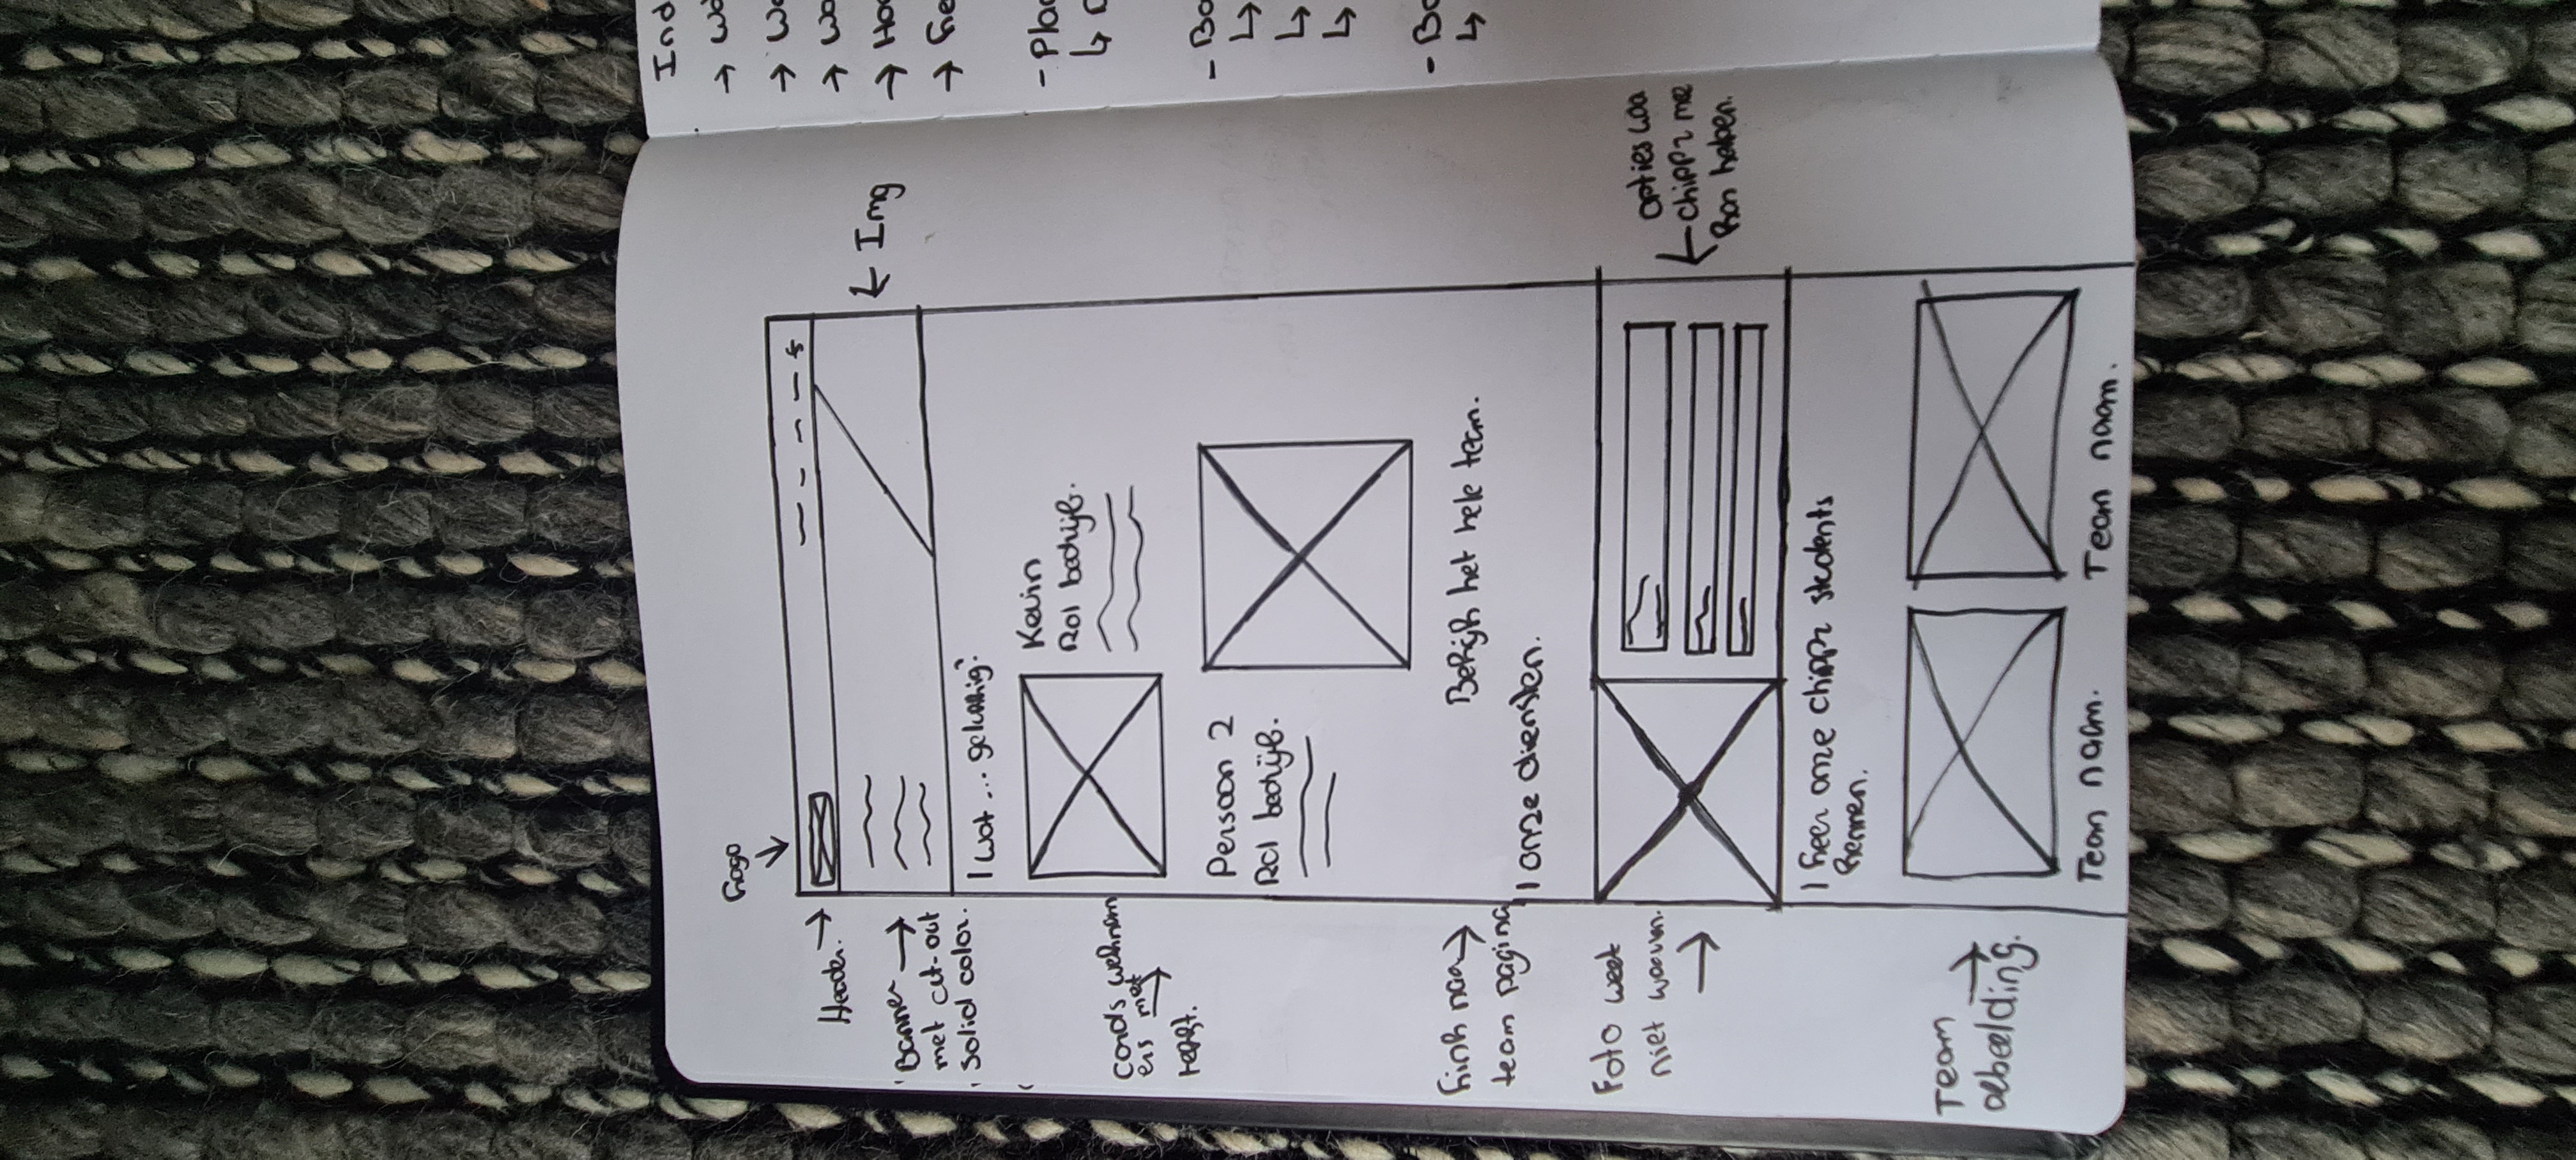 Logo
Header.
Banner
met cut-out
solid color.
Img
| wat ...
Kevin
Rol bedrijf.
cards werknem
ers met
Persoon 2
Rol bedrijf.
Link naa
team pagina
Bekijk het hele team.
| onze diensten.
Foto weet
niet waarvan.
opties waa
chippr mee
kan helpen.
| Leer onze chippr students
kennen.
Team
afbeelding.
Team naam.
Team naam.
Ind
→ Wa
→ Wa
→ Wa
→ Ho
→ Le
- Pla
↳
- Bo
↳
↳
↳
- Bo
↳